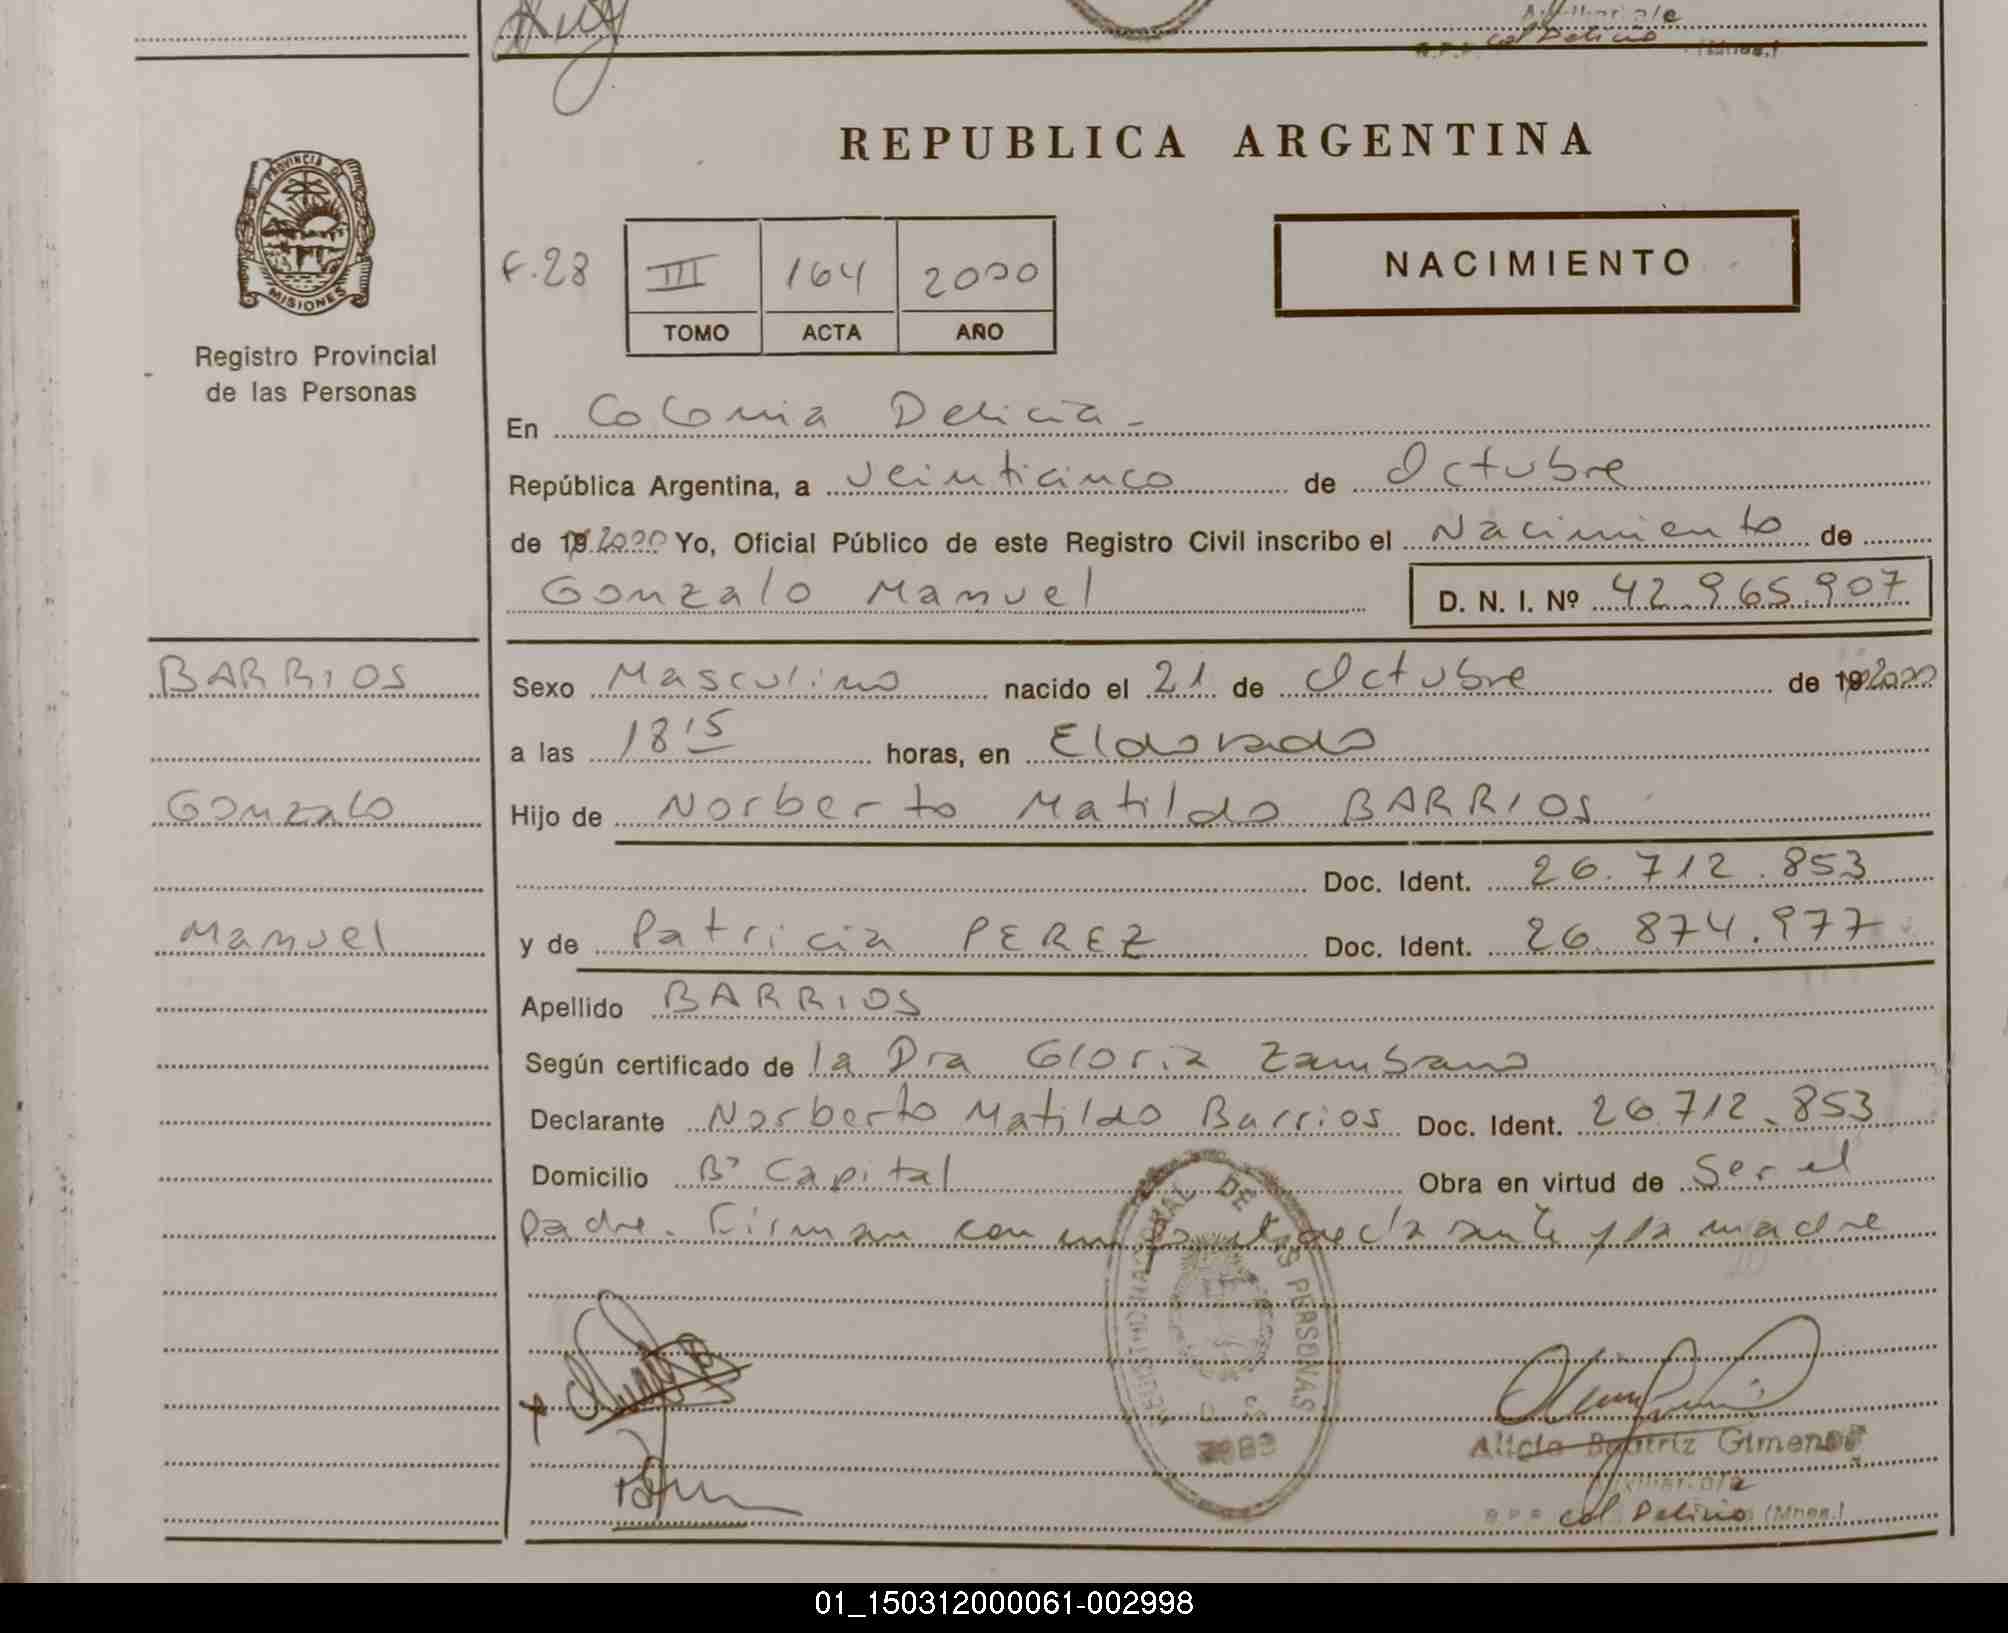 Auxiliar a/c
R.P.P. Col Delicia (Mnes.)
REPUBLICA ARGENTINA
PROVINCIA DE
MISIONES
Registro Provincial
de las Personas
F.28 III 164 2000
TOMO ACTA AÑO
NACIMIENTO
En Colonia Delicia-
República Argentina, a veinticinco de Octubre
de 19 2000 Yo, Oficial Público de este Registro Civil inscribo el Nacimiento de
Gonzalo Manuel D. N. I. Nº 42.965.907
BARRIOS
Gonzalo
Manuel
Sexo Masculino nacido el 21 de Octubre de 19 2000
a las 18 15 horas, en Eldorado
Hijo de Norberto Matildo BARRIOS
Doc. Ident. 26.712.853
y de Patricia PEREZ Doc. Ident. 26.874.977
Apellido BARRIOS
Según certificado de la Dra Gloria Zambano
Declarante Norberto Matildo Barrios Doc. Ident. 26.712.853
Domicilio Bº Capital Obra en virtud de Ser el
padre. Firman con migo el declarante y la madre
REGISTRO NACIONAL DE LAS PERSONAS
Alicia Beatriz Gimenez
Auxiliar a/c
R.P.P. Col Delicia (Mnes.)
01_150312000061-002998